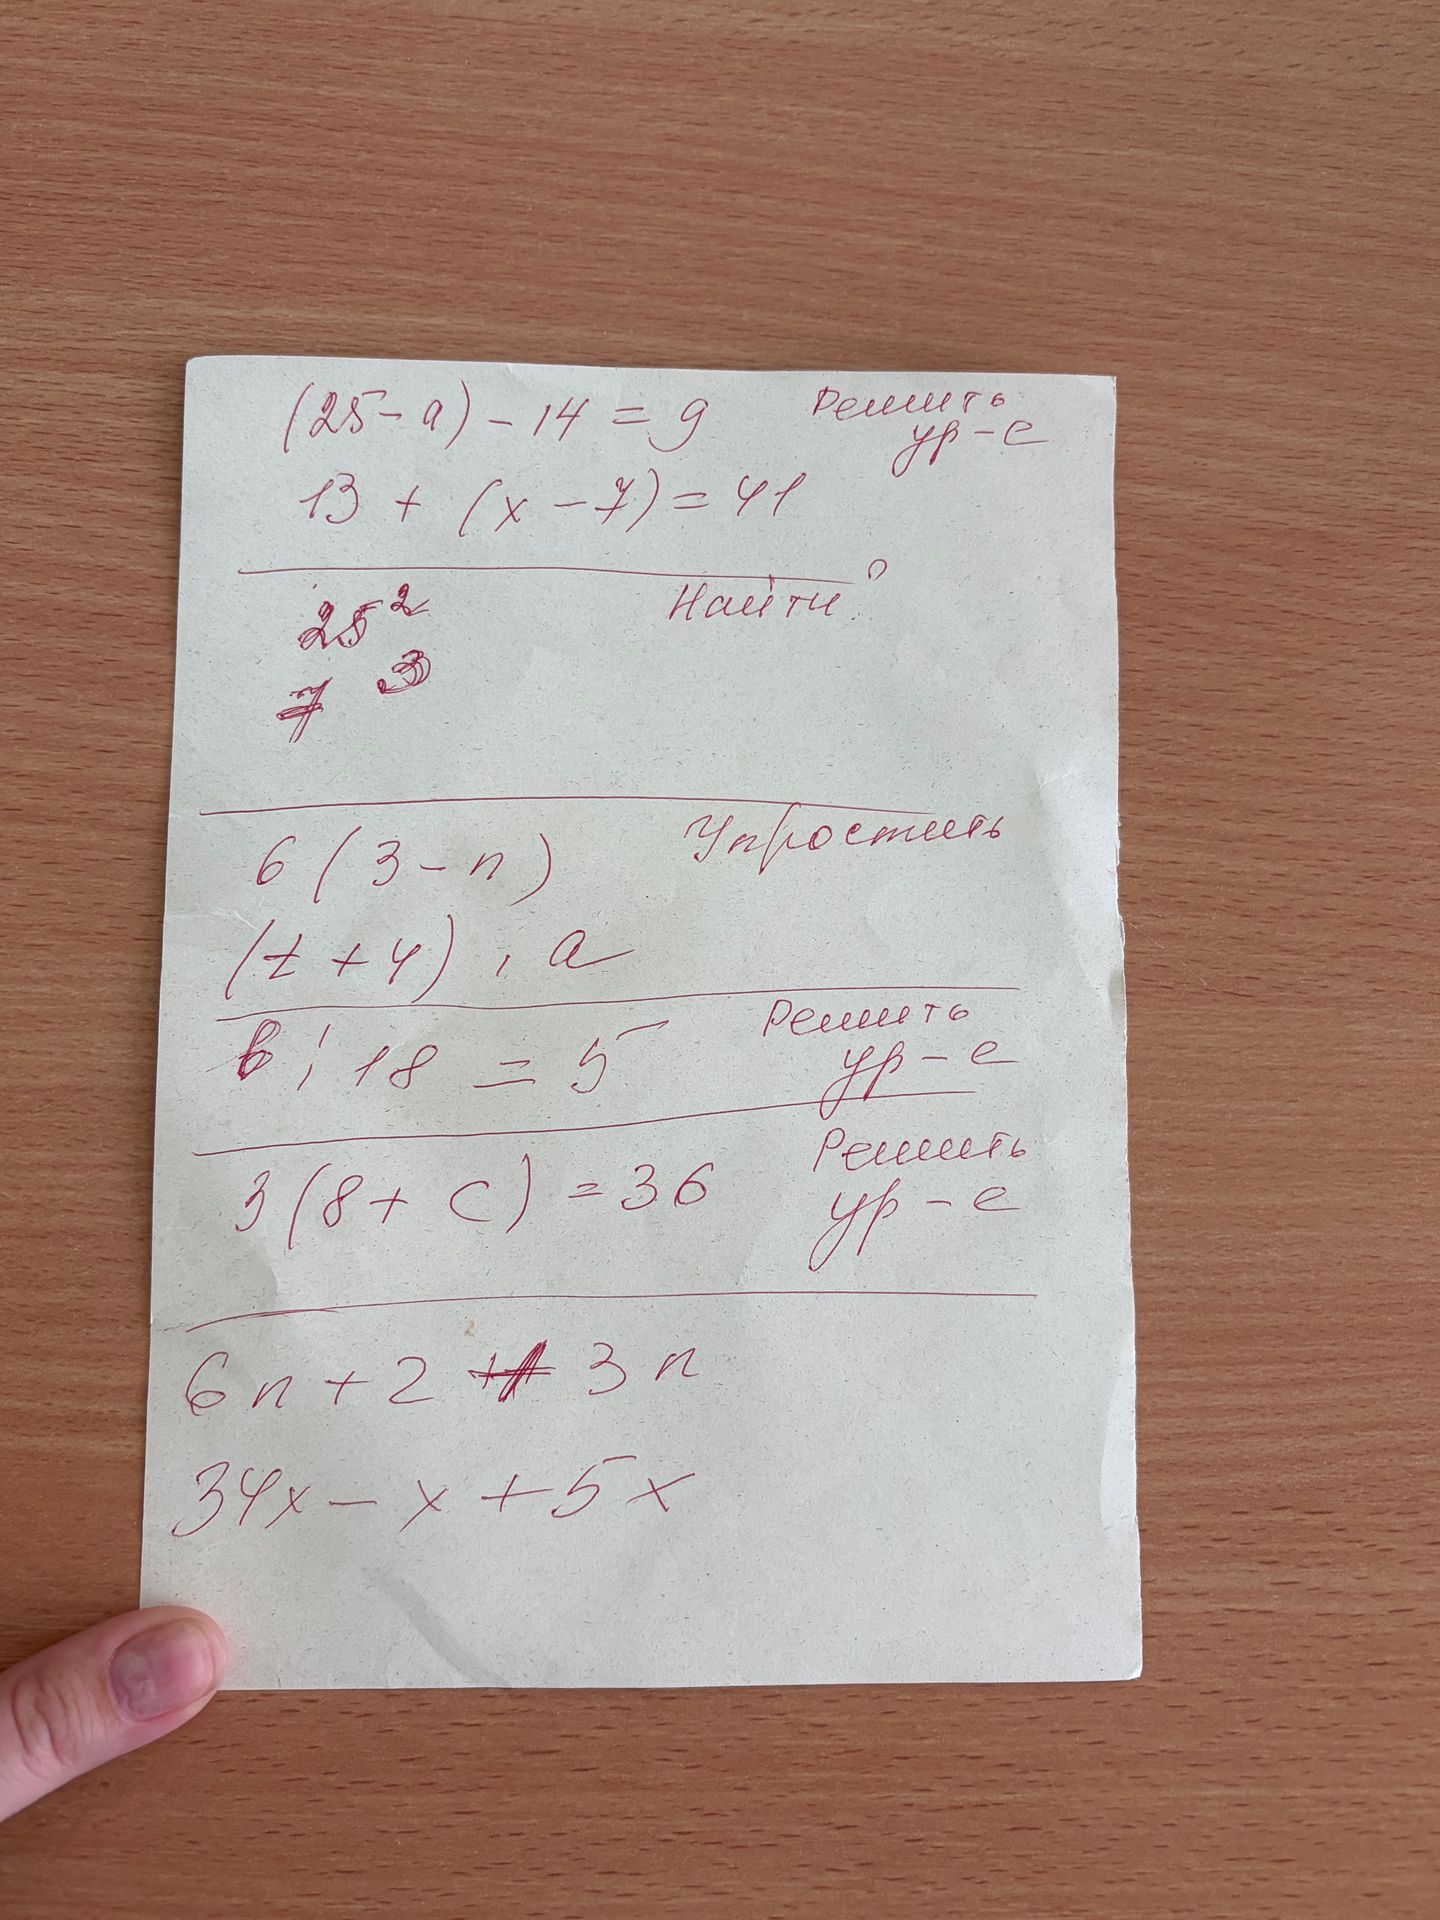 (25 - a) - 14 = 9 Решить
ур - е
13 + (x - 7) = 41
Найти:
25²
7³
6 (3 - n) Упростить
(t + 4) · a
в : 18 = 5 Решить
ур - е
3 (8 + c) = 36 Решить
ур - е
6n + 2 + 3n
34x - x + 5x